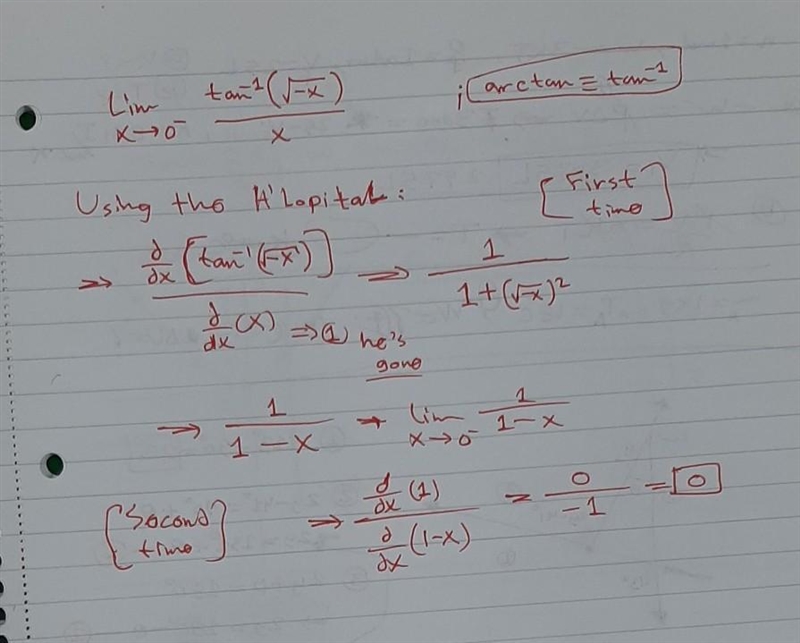 lim x→0⁻ tan⁻¹(√-x) / x ; arctan ≡ tan⁻¹
Using the H'Lopital : [First time]
⇒ ∂/∂x [tan⁻¹(√-x)] / ∂/dx (x) ⇒ (1) he's gone ⇒ 1 / 1+(√-x)²
⇒ 1 / 1-x → lim x→0⁻ 1 / 1-x
[Second time] ⇒ d/dx (1) / ∂/∂x (1-x) = 0 / -1 = 0